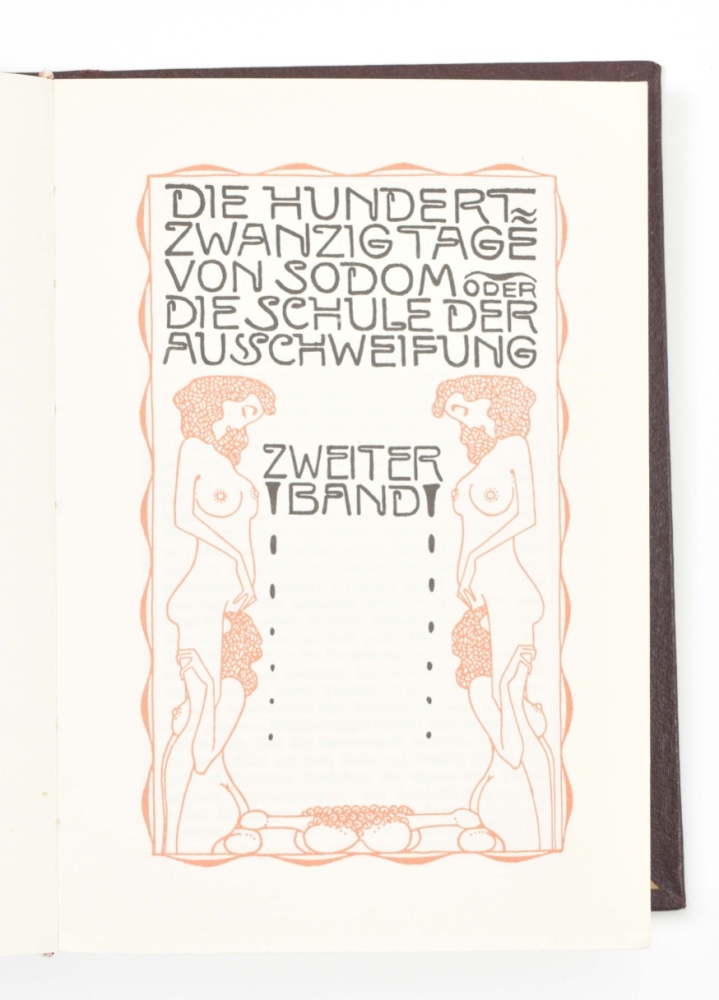 DIE HUNDERT≈
ZWANZIG TAGE
VON SODOM ODER
DIE SCHULE DER
AUSSCHWEIFUNG
ZWEITER
BAND